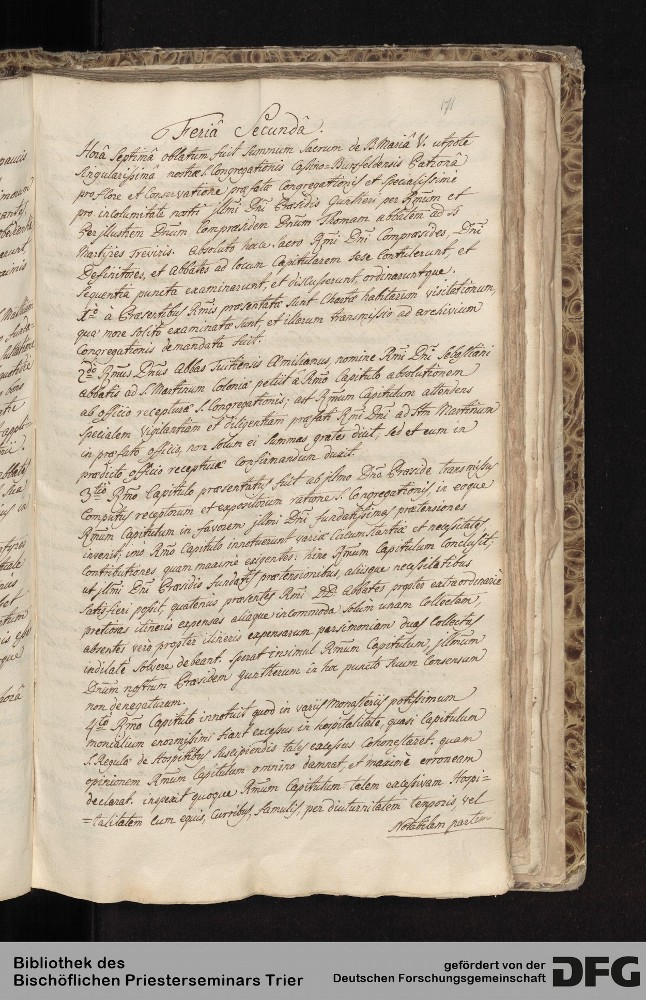 171
Feriâ Secundâ.
Horâ Septimâ oblatum fuit summum Sacrum de B. Mariâ V. utpote
singularissimâ nostræ S. Congregationis Cassino-Bursfeldensis Patronâ
pro flore et conservatione præfatæ Congregationis et specialissime
pro incolumitate nostri Illmi Dni Præsidis Guntheri per Rmum et
Perillustrem Dnum Compræsidem Dnum Thomam abbatem ad SS
Martyres Treviris. Absoluto hoc Sacro Rmi Dni Compræsides, Dni
Definitores, et Abbates ad locum Capitularem sese contulerunt, et
sequentia puncta examinarunt, et discusserunt, ordinaruntque.
1mo a Præsentibus Rmis præsentatæ sunt Chartæ habitarum visitationum,
quæ more solito examinatæ sunt, et illarum transmissio ad archivium
Congregationis demandata fuit.
2do Rmus Dnus Abbas Tuitiensis Æmilianus, nomine Rmi Dni Sebastiani
abbatis ad S. Martinum Coloniæ petiit a Rmo Capitulo absolutionem
ab officio receptura S. Congregationis; ast Rmum Capitulum attendens
specialem vigilantiam et diligentiam præfati Rmi Dni ad Stm Martinum
in præfato officio, non solum ei summas grates dicit, sed et eum in
prædicto officio recepturæ confirmandum duxit.
3tio Rmo Capitulo præsentatus fuit ab Illmo Dno Præside transmissus
Computus receptorum et expositorum ratione S. Congregationis, in eoque
Rmum Capitulum in favorem Illmi Dni fundatissimas prætensiones
invenit; imo Rmo Capitulo innotuerunt variæ circumstantiæ et necessitates
contributiones quam maxime exigentes: hinc Rmum Capitulum conclusit;
ut Illmi Dni Præsidis fundatis prætensionibus, aliisque necessitatibus
satisfieri possit, quatenus præsentes Rmi DD. Abbates propter extraordinarie
pretiosas itineris expensas aliaque incommoda solum unam Collectam,
absentes vero propter itineris expensarum parsimoniam duas Collectas
indilatè solvere debeant. sperat insimul Rmum Capitulum, Illmum
Dnum nostrum Præsidem Guntherum in hoc puncto suum Consensum
non denegaturum.
4to Rmo Capitulo innotuit quod in variis Monasteriis potissimum
monialium enormissimi fiant excessus in hospitalitate, quasi Capitulum
S. Regulæ de Hospitibus suscipiendis tales excessus Cohonestaret. quam
opinionem Rmum Capitulum omnino damnat et maxime erroneam
declarat. inspexit quoque Rmum Capitulum talem excessivam Hospi=
=talitatem cum equis, Curribus, famulis, per diuturnitatem temporis, vel
Notabilem partem
Bibliothek des
Bischöflichen Priesterseminars Trier
gefördert von der
Deutschen Forschungsgemeinschaft
DFG